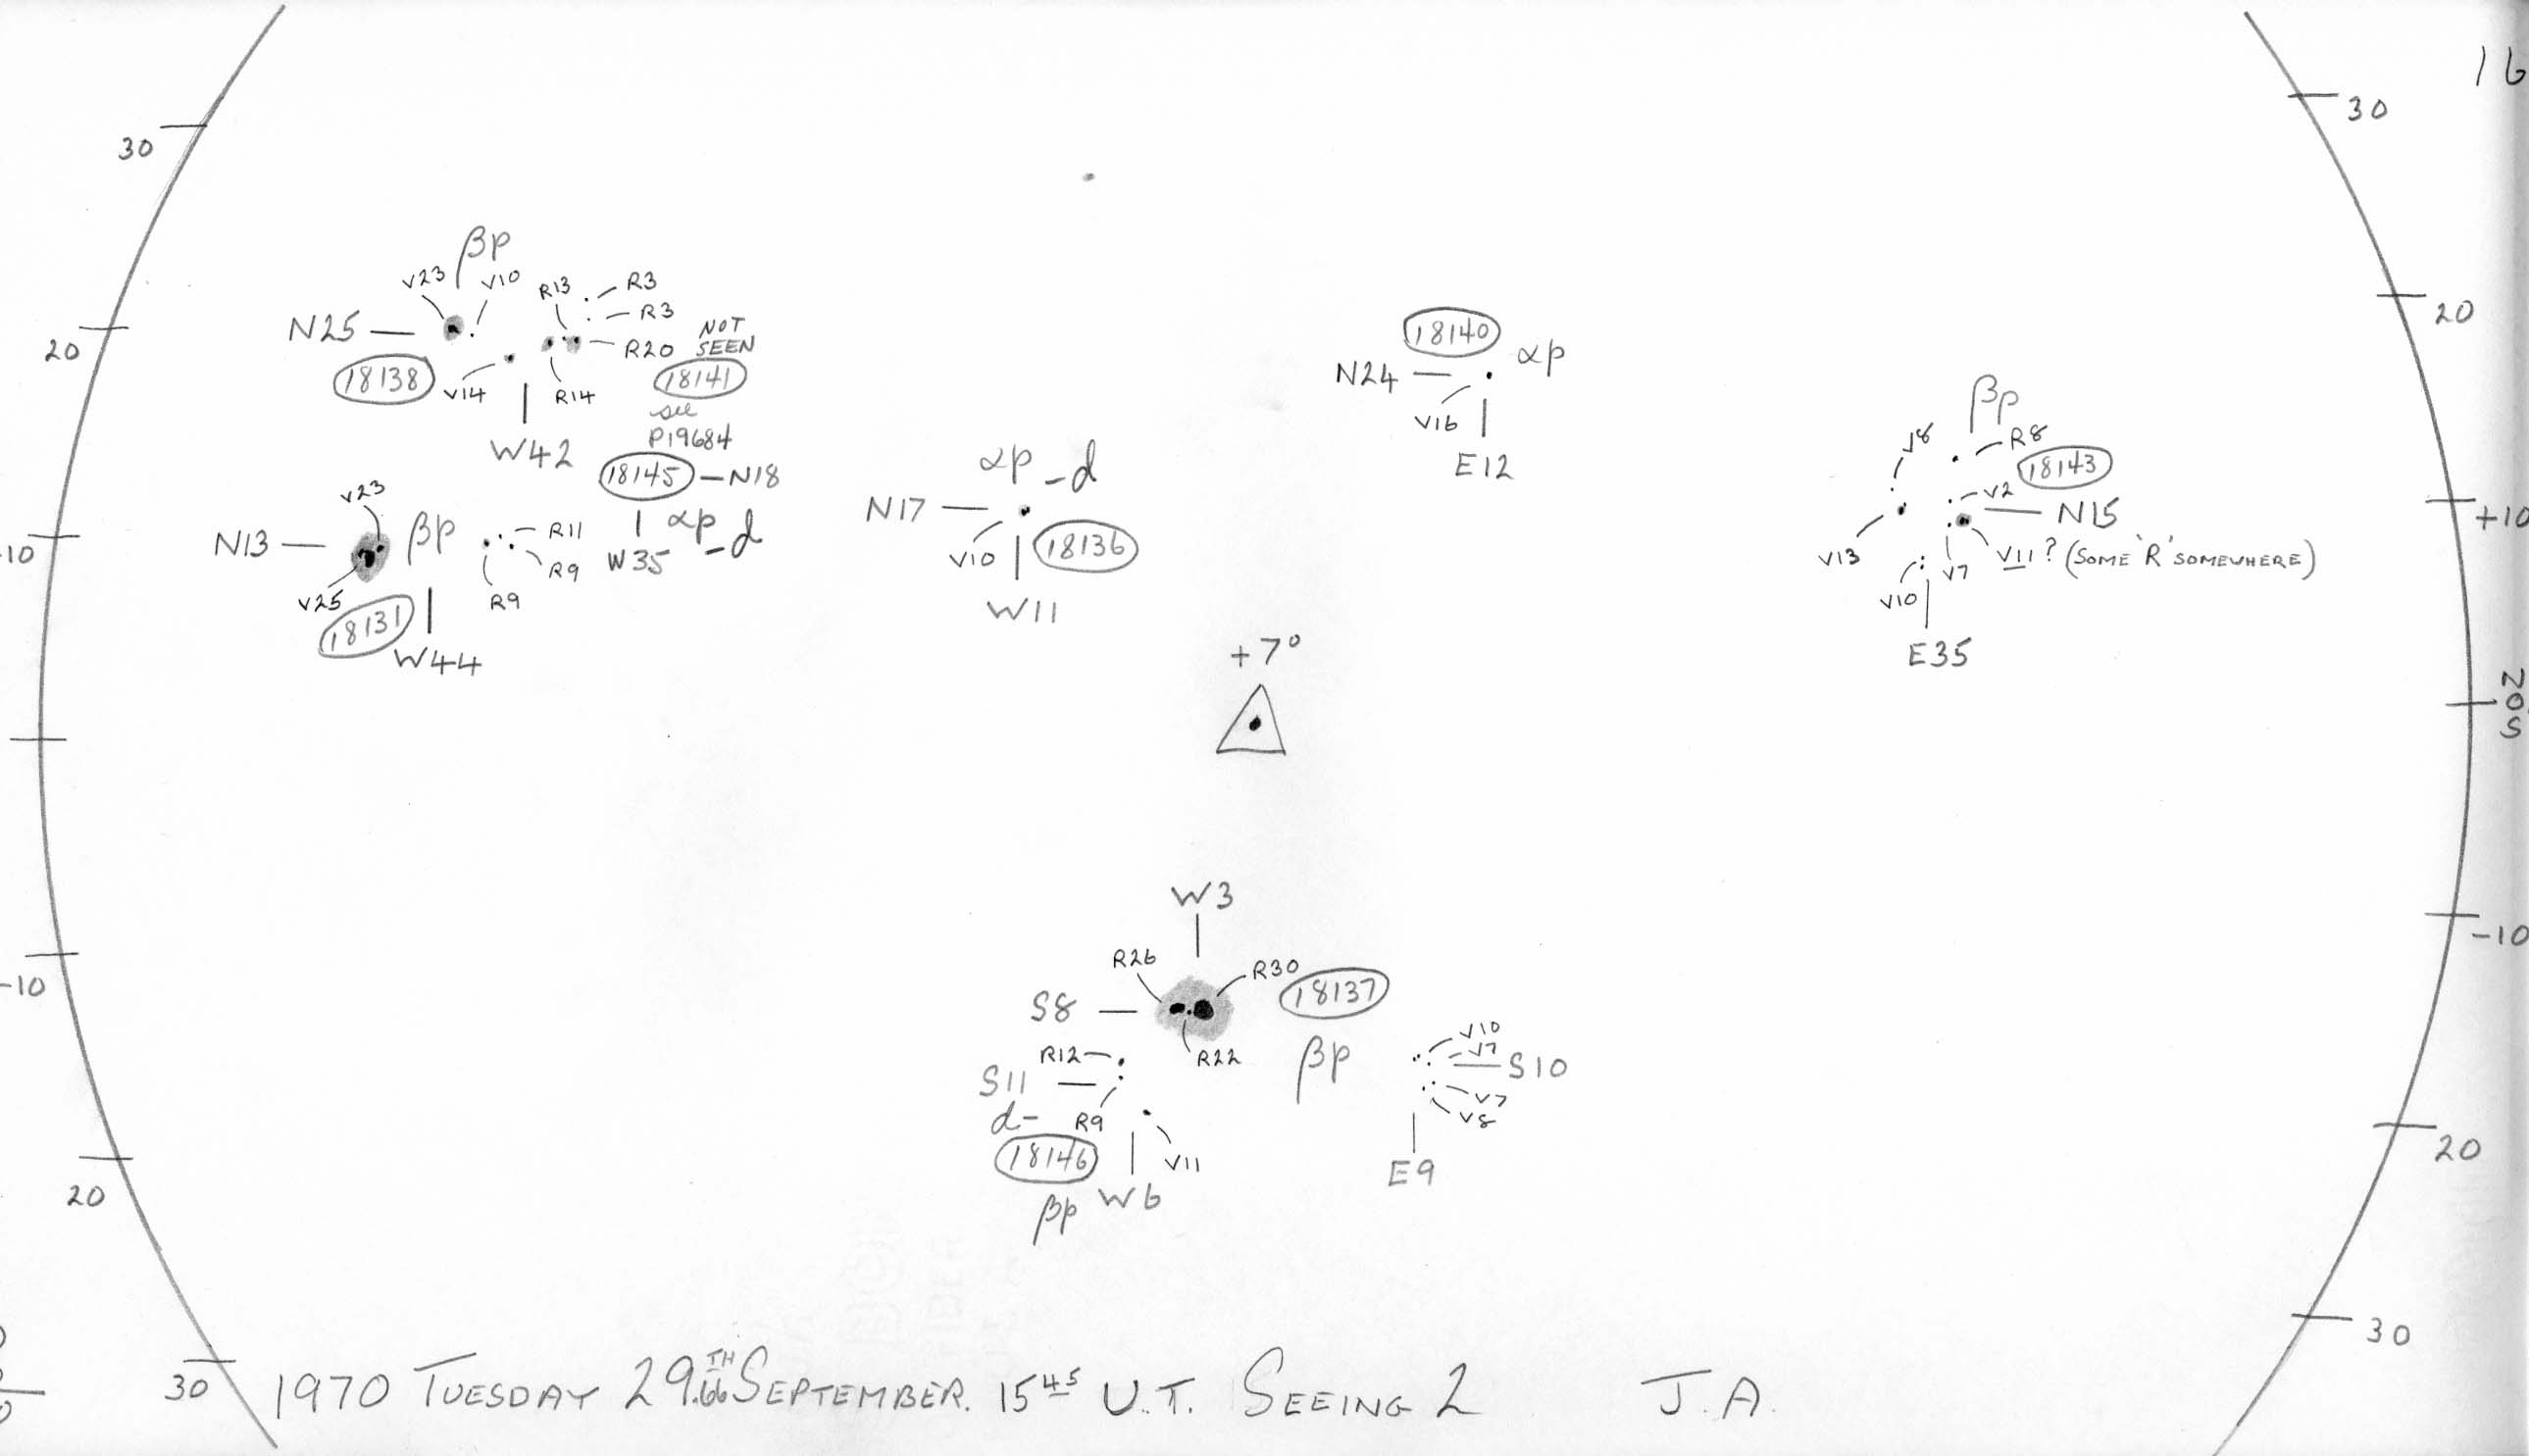 16
30
30
20
20
10
+10
N
0
S
-10
-10
20
20
30
30
βp
V23
V10
N25
18138
V14
W42
R13
R3
R3
R20
R14
NOT
SEEN
18141
see
P19684
18145 – N18
W35
αp
-d
V23
N13
βp
V25
18131
W44
R11
R9
R9
αp-d
N17
V10
18136
W11
18140
N24
αp
V16
E12
βp
R8
18143
V2
N15
V13
V11? (SOME 'R' SOMEWHERE)
V7
V10
E35
+7°
W3
R26
R30
18137
S8
R22
βp
R12
S11
d-
R9
18146
V11
W6
βp
V10
V7
S10
V7
V8
E9
1970 TUESDAY 29.66TH SEPTEMBER. 15 45 U.T. SEEING 2 J.A.